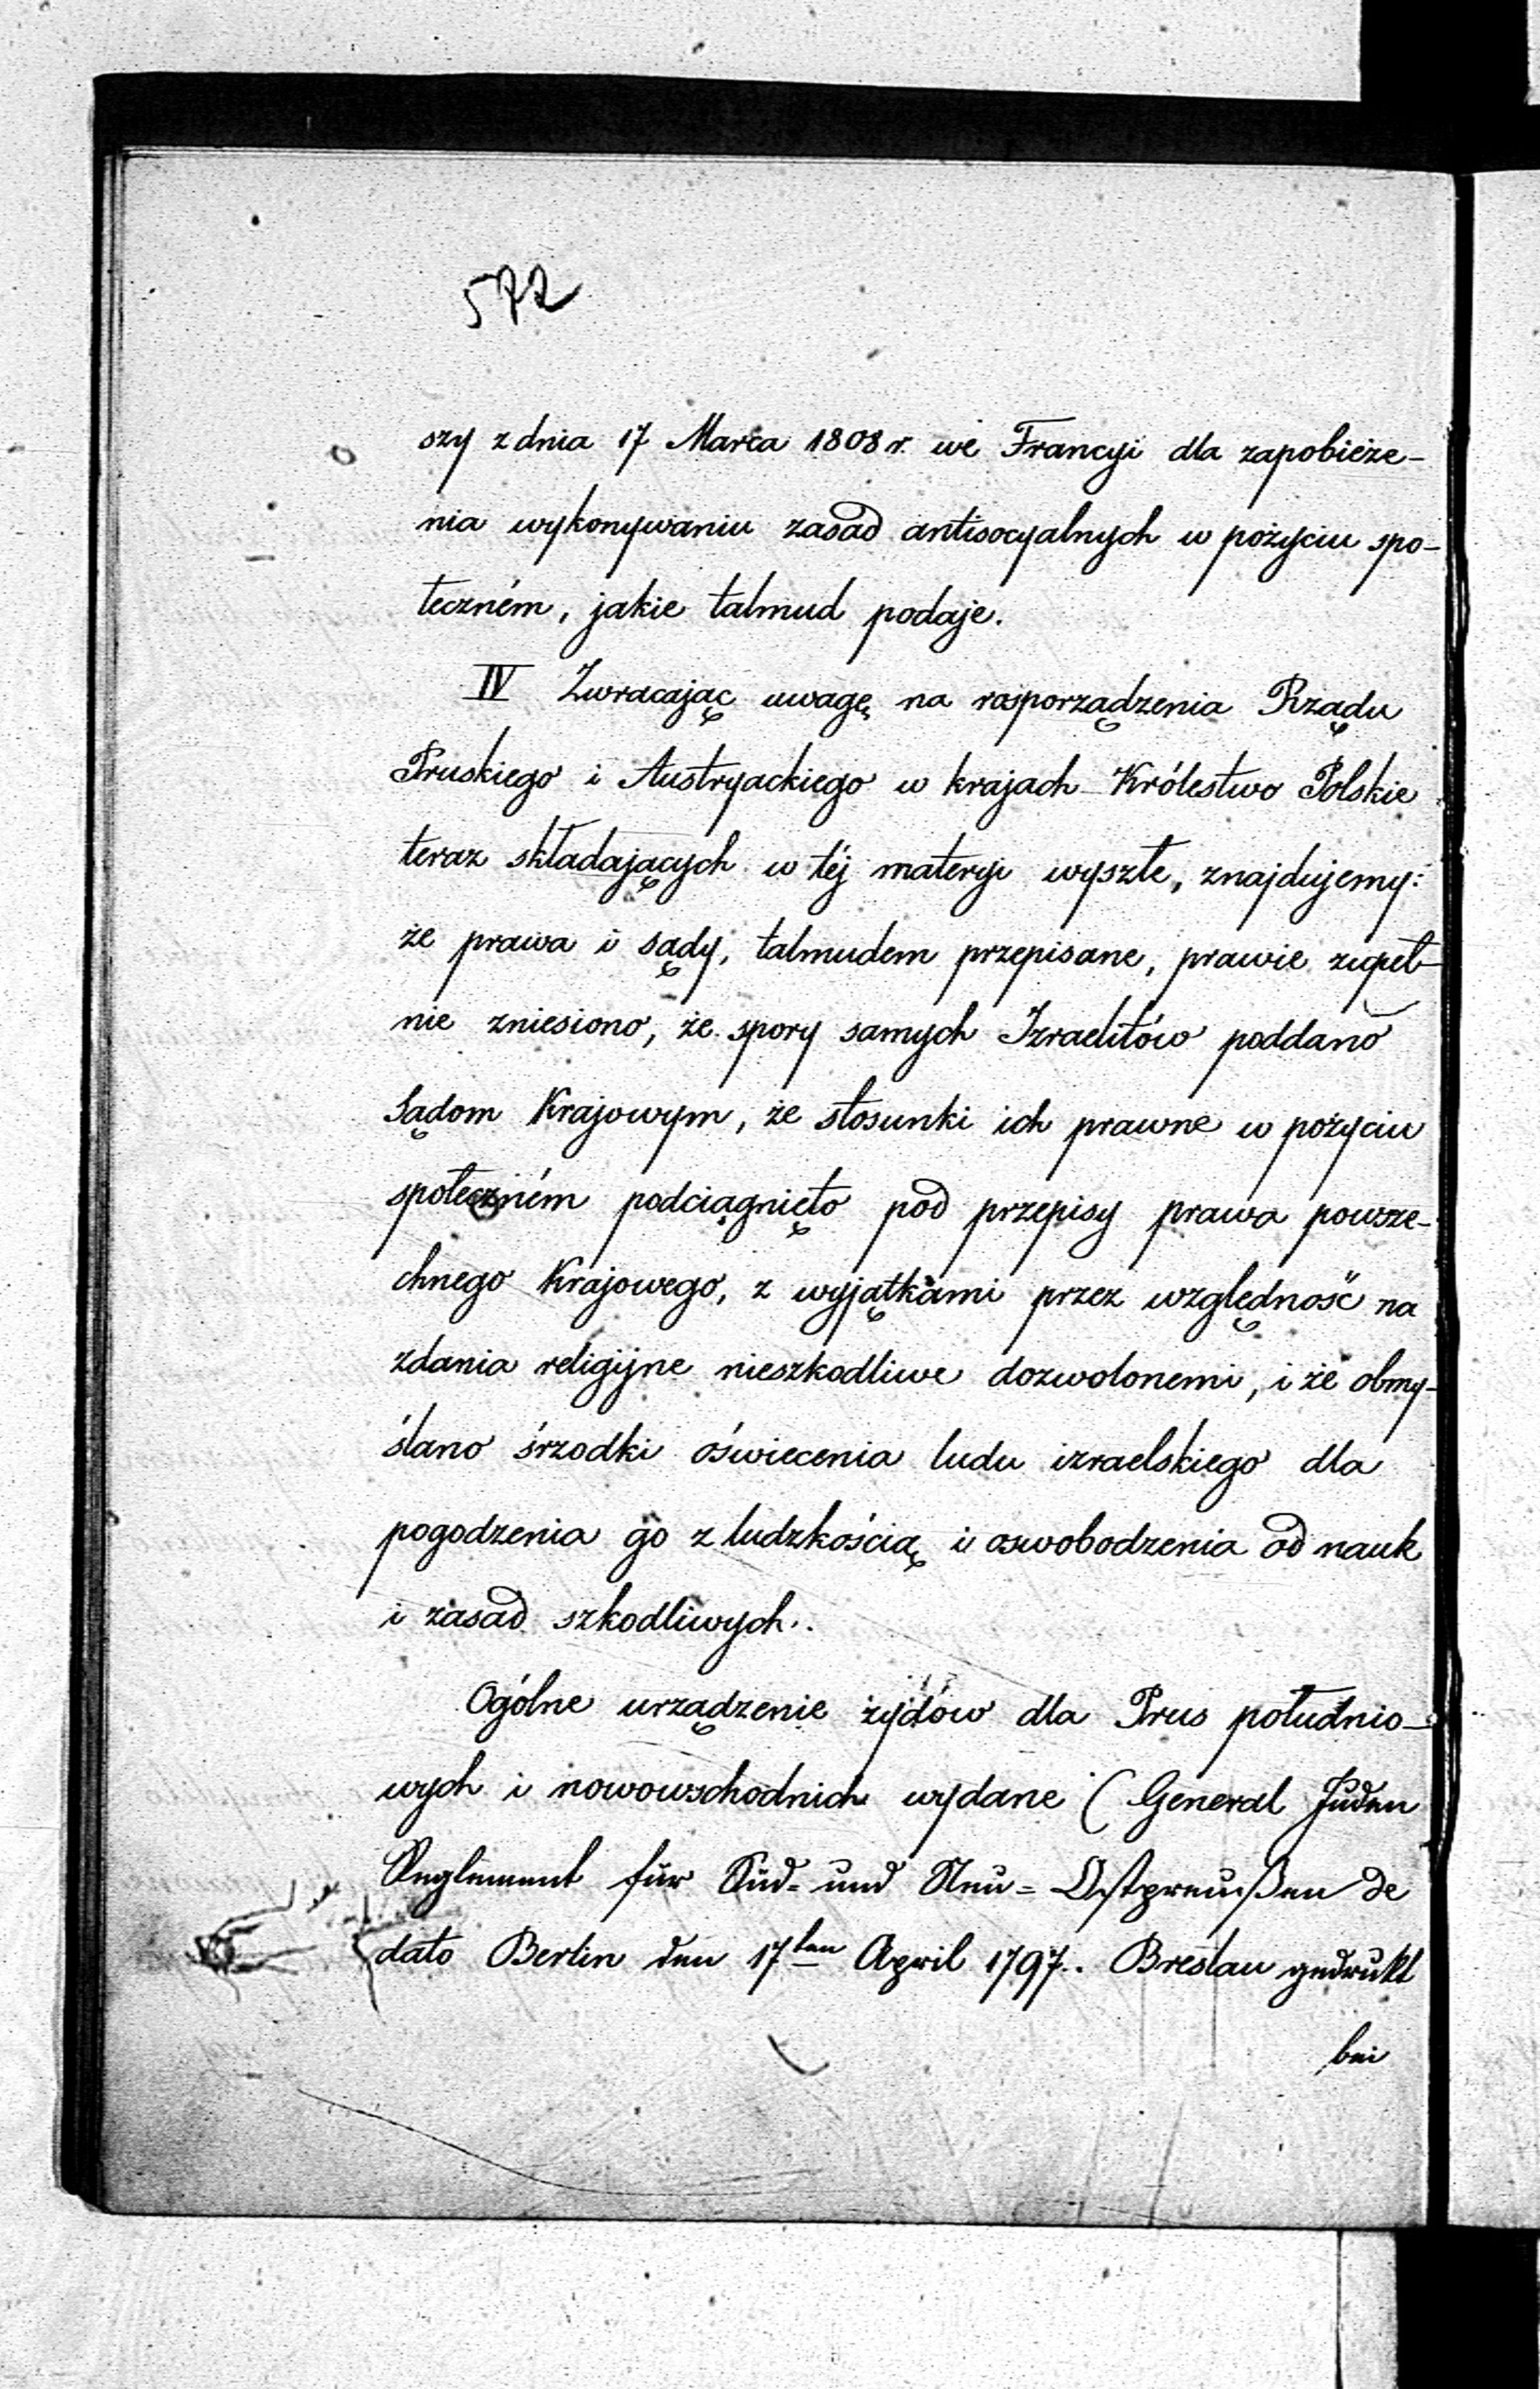 572
szy z dnia 17 Marca 1808 r. we Francyi dla zapobieże-
nia wykonywaniu zasad antisocyalnych w pożyciu spo-
łeczném, jakie talmud podaje.
IV Zwracając uwagę na rosporządzenia Rządu
Pruskiego i Austryackiego w krajach Królestwo Polskie
teraz składających w téj materyi wyszłe, znajdujemy:
że prawa i sądy, talmudem przepisane, prawie zupeł-
nie zniesiono, że spory samych Izraelitów poddano
Sądom Krajowym, że stosunki ich prawne w pożyciu
społeczném podciągnięto pod przepisy prawa powsze-
chnego Krajowego, z wyjątkami przez względność na
zdania religijne nieszkodliwe dozwolonemi, i że obmy-
ślano śrzodki oświecenia ludu izraelskiego dla
pogodzenia go z ludzkością i oswobodzenia od nauk
i zasad szkodliwych.
Ogólne urządzenie żydów dla Prus południo-
wych i nowowschodnich wydane (General Juden
Reglement für Süd= und Neu= Ostpreußen de
dato Berlin den 17ten April 1797. Breslau gedrukt
bei